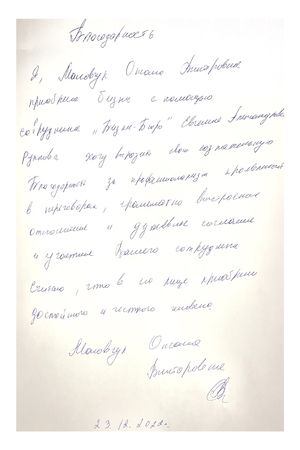 Благодарность
Я, Маловчук Оксана Викторовна
приобрела бизнес с помощью
сотрудника "Бизон-Бюро" Евгения Александров
хочу выразить свою
благодарность за профессионализм проявленный
в переговорах, грамотно выстроенные
отношения и
и участие Вашего сотрудника
Считаю, что в его лице приобрели
достойного и честного
Маловчук Оксана
Викторовна
23.12.2022г.